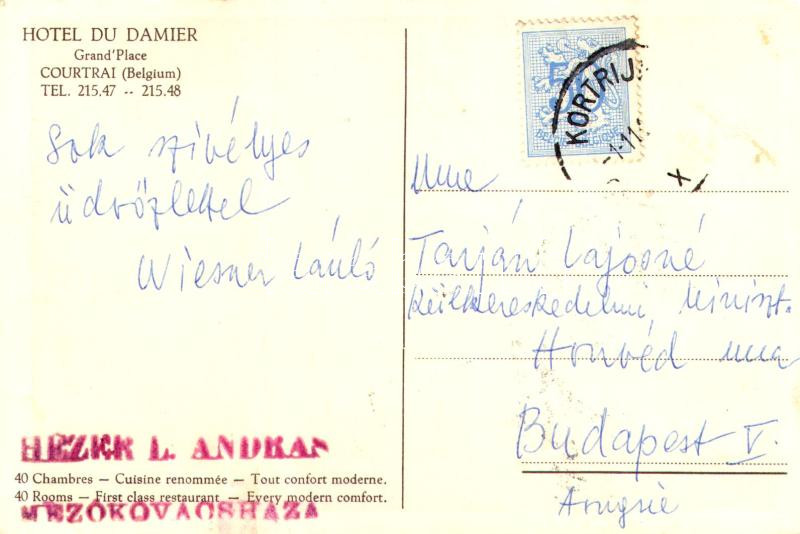 HOTEL DU DAMIER
Grand'Place
COURTRAI (Belgium)
TEL. 215.47 -- 215.48
Sok szivélyes
üdvözlettel
Wiesner László
50
BELGIE-BELGIQUE
KORTRIJ
-1-11
x
Mme
Tarján Lajosné
Külkereskedelmi Miniszt.
Honvéd utca
Budapest V.
Hongrie
HEZER L. ANDRAS
40 Chambres — Cuisine renommée — Tout confort moderne.
40 Rooms — First class restaurant — Every modern comfort.
MEZŐKOVÁCSHÁZA